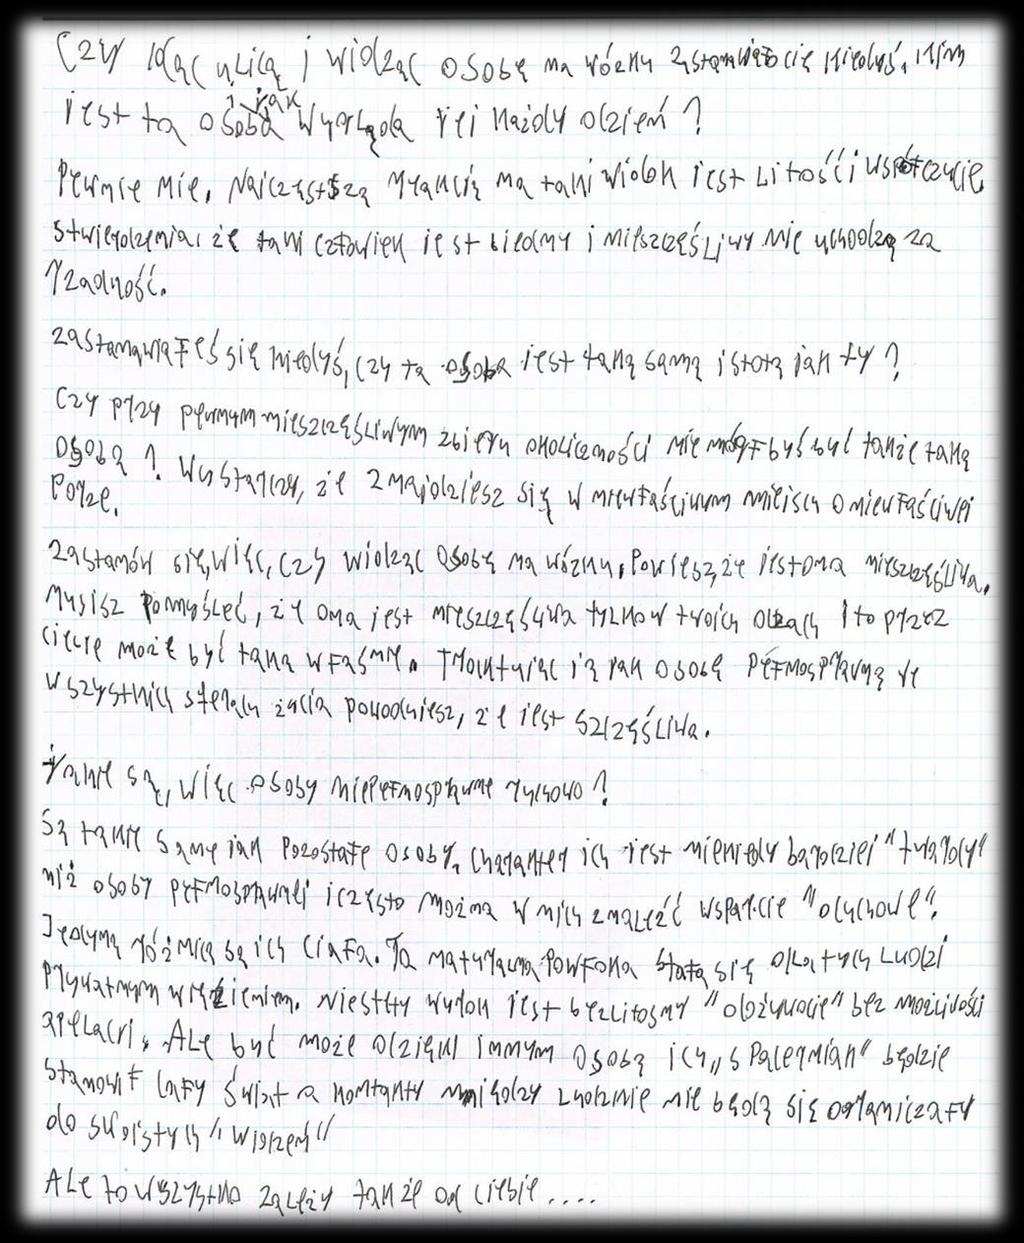 Czy idąc ulicą i widząc osobę na wózku zastanawiało cię kiedyś, kim
jest ta osoba i jak wygląda jej każdy dzień?
Pewnie nie. Najczęstszą reakcją na taki widok jest litość i współczucie,
stwierdzenia, że taki człowiek jest biedny i nieszczęśliwy nie uchodzą za
rzadność.
Zastanawiałeś się kiedyś, czy ta osoba jest taką samą istotą jak ty?
Czy przy pewnym nieszczęśliwym zbiegu okoliczności nie mógłbyś być także taką
osobą? Wystarczy, że znajdziesz się w niewłaściwym miejscu o niewłaściwej
porze.
Zastanów się, więc, czy widząc osobę na wózku, powiesz, że jest ona nieszczęśliwa.
Musisz pomyśleć, że ona jest nieszczęśliwa tylko w twoich oczach i to przez
ciebie może być taka właśnie. Traktując ją jak osobę pełnosprawną we
wszystkich sferach życia powodujesz, że jest szczęśliwa.
Jakie są, więc osoby niepełnosprawne ruchowo?
Są takie same jak pozostałe osoby. Charakter ich jest niekiedy bardziej "twardy"
niż osoby pełnosprawnej i często można w nich znaleźć wsparcie "duchowe".
Jedyną różnicą są ich ciała. Ta naturalna powłoka stała się dla tych ludzi
prywatnym więzieniem. Niestety wyrok jest bezlitosny "dożywocie" bez możliwości
apelacji. Ale być może dzięki innym osobą ich „spacerniak" będzie
stanowił cały świat a kontakty między ludźmi nie będą się ograniczały
do sulistych "widzeń"
Ale to wszystko zależy także od ciebie....